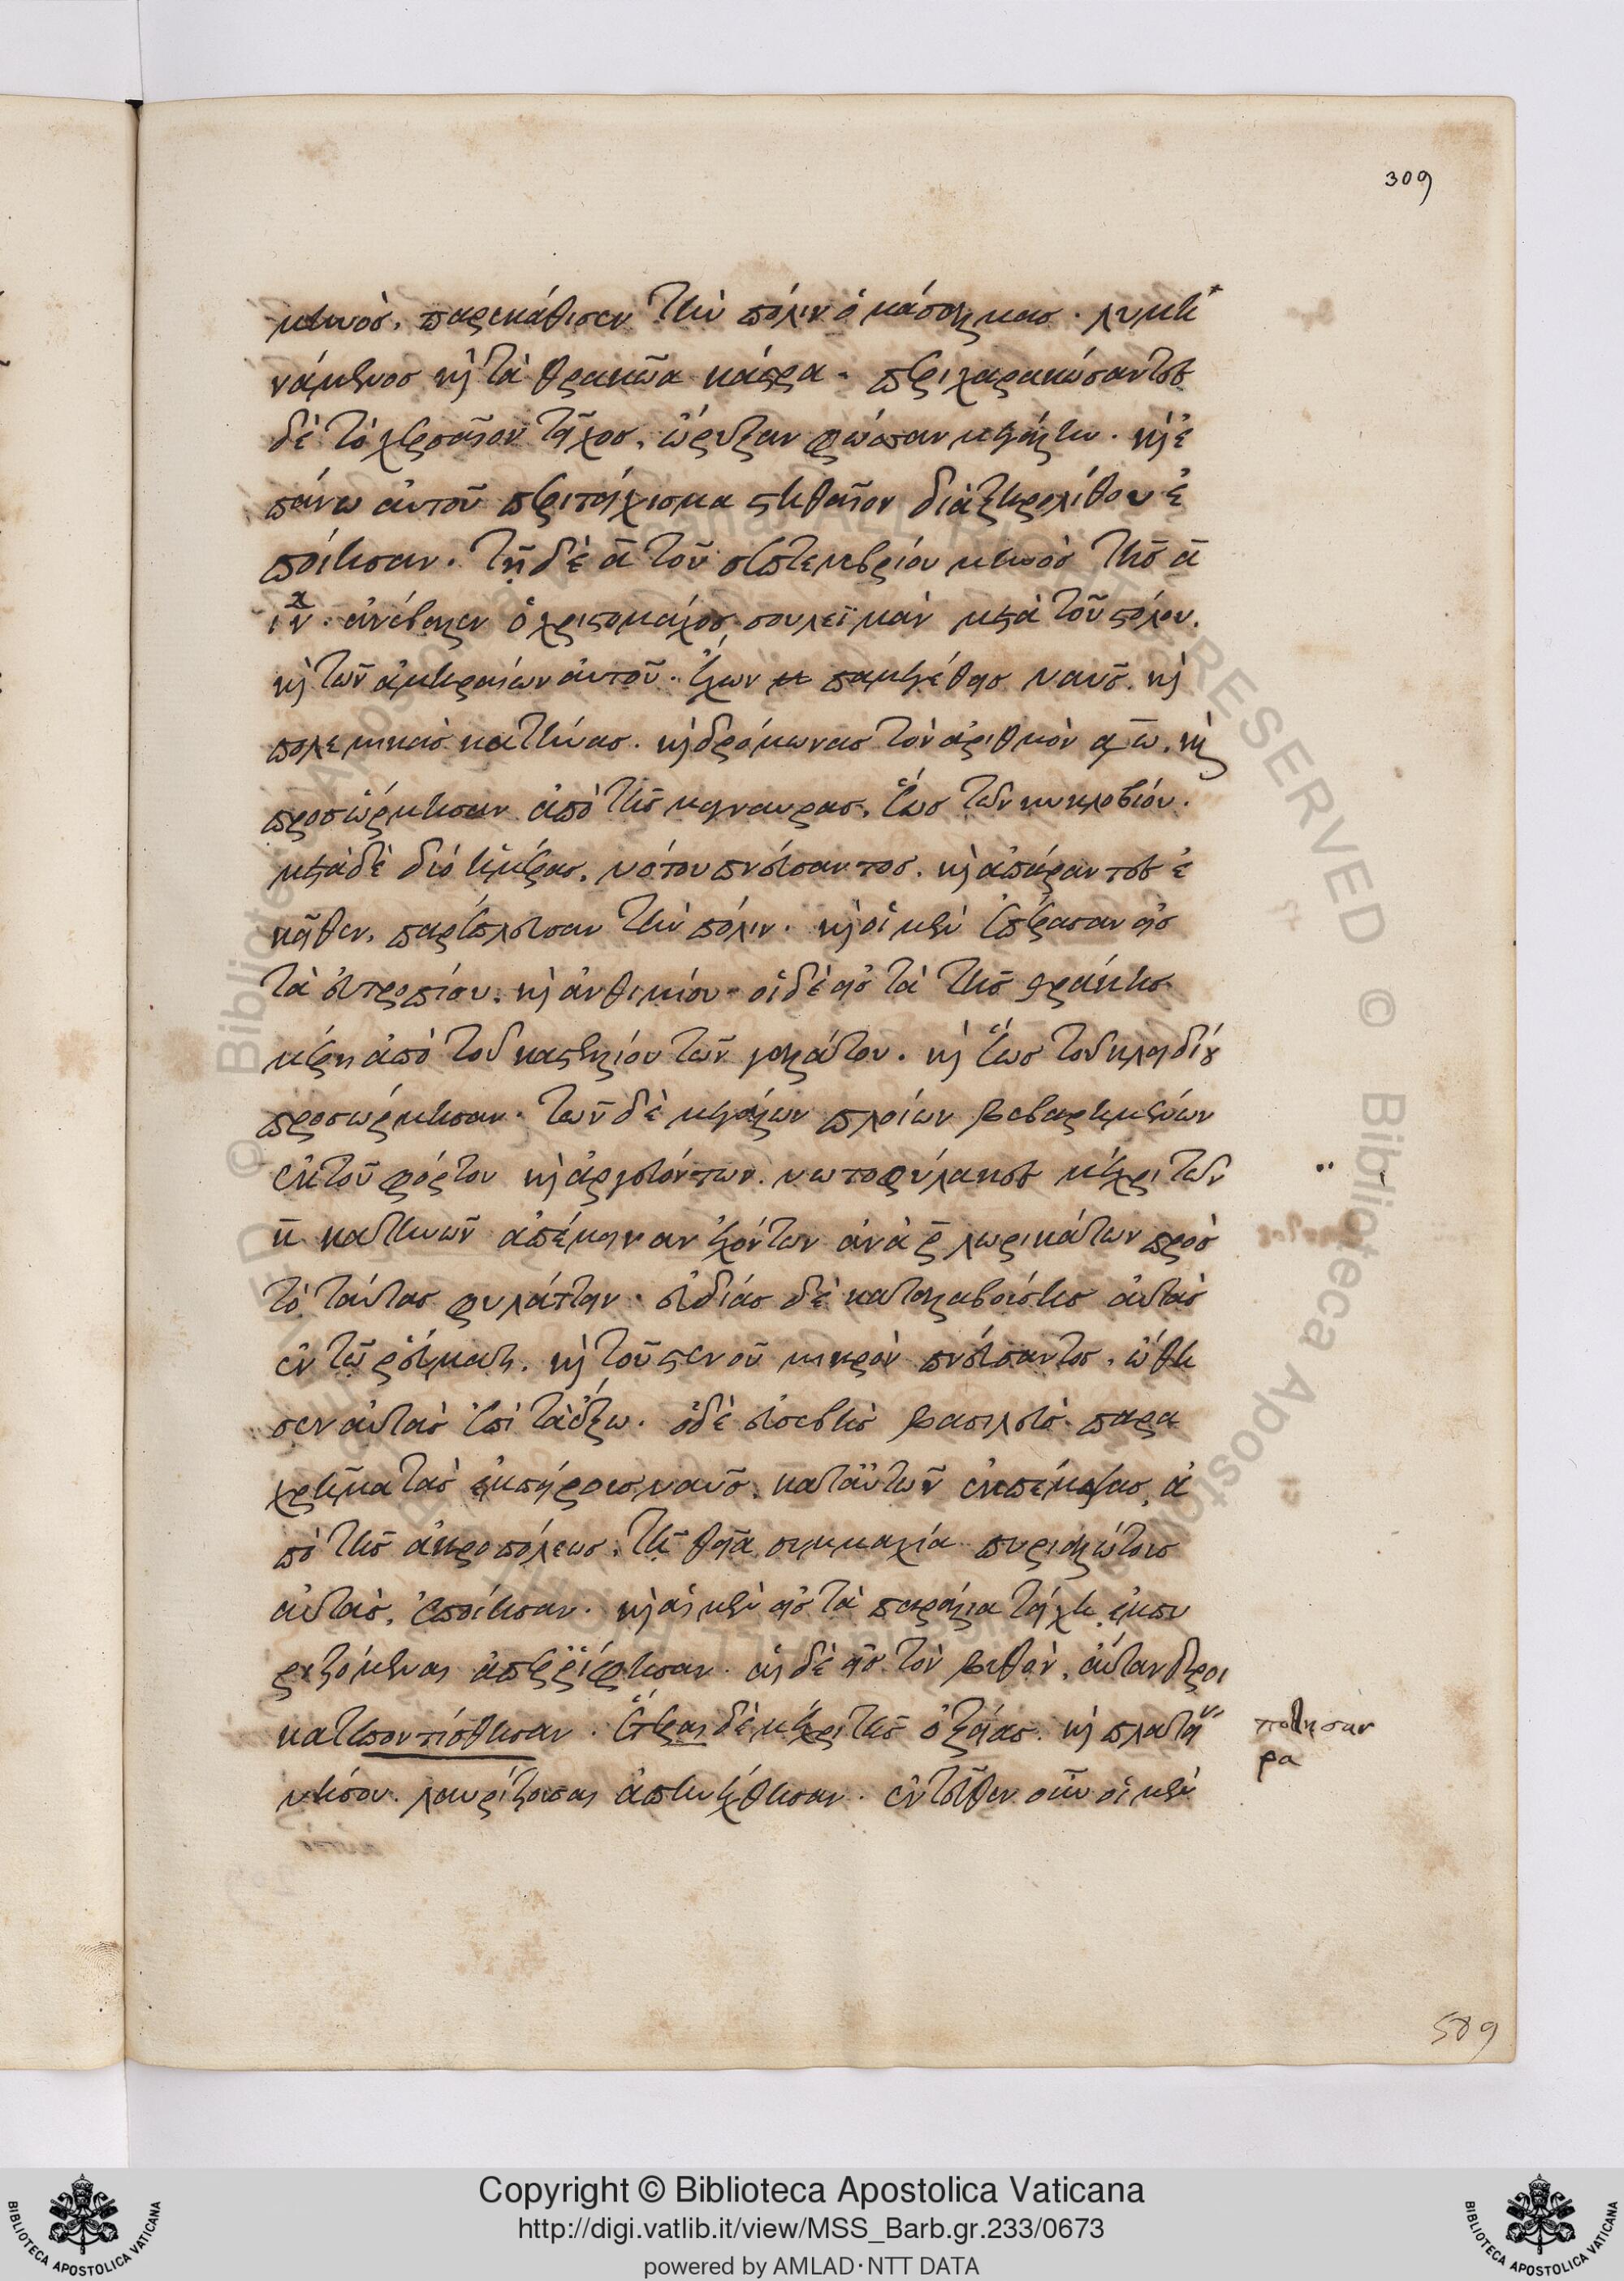 309
μηνὸς, παρεκάθισεν τὴν πόλιν ὁ μάσαλμας. λυμη
νάμενος καὶ τὰ θρακῶα κάστρα. περιχαρακώσαντες
δὲ τὸ χερσαῖον τεῖχος, ὤρυξαν φώσαν μεγάλην. καὶ ἐ
πάνω αὐτοῦ περιτείχισμα στηθαῖον διὰ ξηρολίθου ἐ
ποίησαν. τῇ δὲ α τοῦ σεπτεμβρίου μηνὸς τῆς α
ἰν. ἀνέβαλεν ὁ χριστομάχος σουλεϊμὰν μετὰ τοῦ στόλου.
καὶ τῶν ἀμηραίων αὐτοῦ. ἔχων παμεγέθεις ναῦς. καὶ
πολεμικὰς κατήνας. καὶ δρόμωνας τὸν ἀριθμὸν ͵αω. καὶ
προσώρμησαν ἀπὸ τῆς μαγναύρας, ἕως τῶν κυκλοβίου.
μετὰ δὲ δύο ἡμέρας, νότου πνεύσαντος, καὶ ἀπάραντες ἐ
κεῖθεν, παρέπλευσαν τὴν πόλιν. καὶ οἱ μὲν ἐπέρασαν εἰς
τὰ εὐτροπίου. καὶ ἀνθεμίου. οἱ δὲ εἰς τὰ τῆς θράκης
μέρη ἀπὸ τοῦ καστελίου τῶν γαλάτου. καὶ ἕως τοῦ κλειδίου
προσώρμησαν. τῶν δὲ μεγάλων πλοίων βεβαρημένων
ἐκ τοῦ φόρτου καὶ ἀργευόντων. νωτοφύλακες μέχρι τῶν
κ κατηνῶν ἀπέμειναν ἐχόντων ἀνὰ ρ λωρικάτων πρὸς
τὸ ταύτας φυλάττειν. εὐδίας δὲ καταλαβούσης αὐτὰς
ἐν τῷ ῥεύματι. καὶ τοῦ στενοῦ μικρὸν πνεύσαντος, ὤθη
σεν αὐτὰς ἐπὶ τὰ ἔξω. ὁ δὲ εὐσεβὴς βασιλεὺς παρα
χρῆμα τὰς ἐμπύρους ναῦς, κατ' αὐτῶν ἐκπέμψας, ἀ
πὸ τῆς ἀκροπόλεως, τῇ θείᾳ συμμαχίᾳ πυριαλώτους
αὐτὰς, ἐποίησαν. καὶ αἱ μὲν εἰς τὰ παράλια τείχη ἐμπυ
ριζόμεναι ἀπερρίφησαν. αἱ δὲ εἰς τὸν βυθὸν, αὔτανδροι
κατεποντίσθησαν. ἕτεραι δὲ μέχρι τῆς ὀξείας. καὶ πλατεί
νήσου. λαυρίζουσαι ἀπηνέχθησαν. ἐντεῦθεν οὖν οἱ μὲν
ρα
589
Copyright © Biblioteca Apostolica Vaticana
http://digi.vatlib.it/view/MSS_Barb.gr.233/0673
powered by AMLAD·NTT DATA
BIBLIOTECA APOSTOLICA VATICANA
BIBLIOTECA APOSTOLICA VATICANA